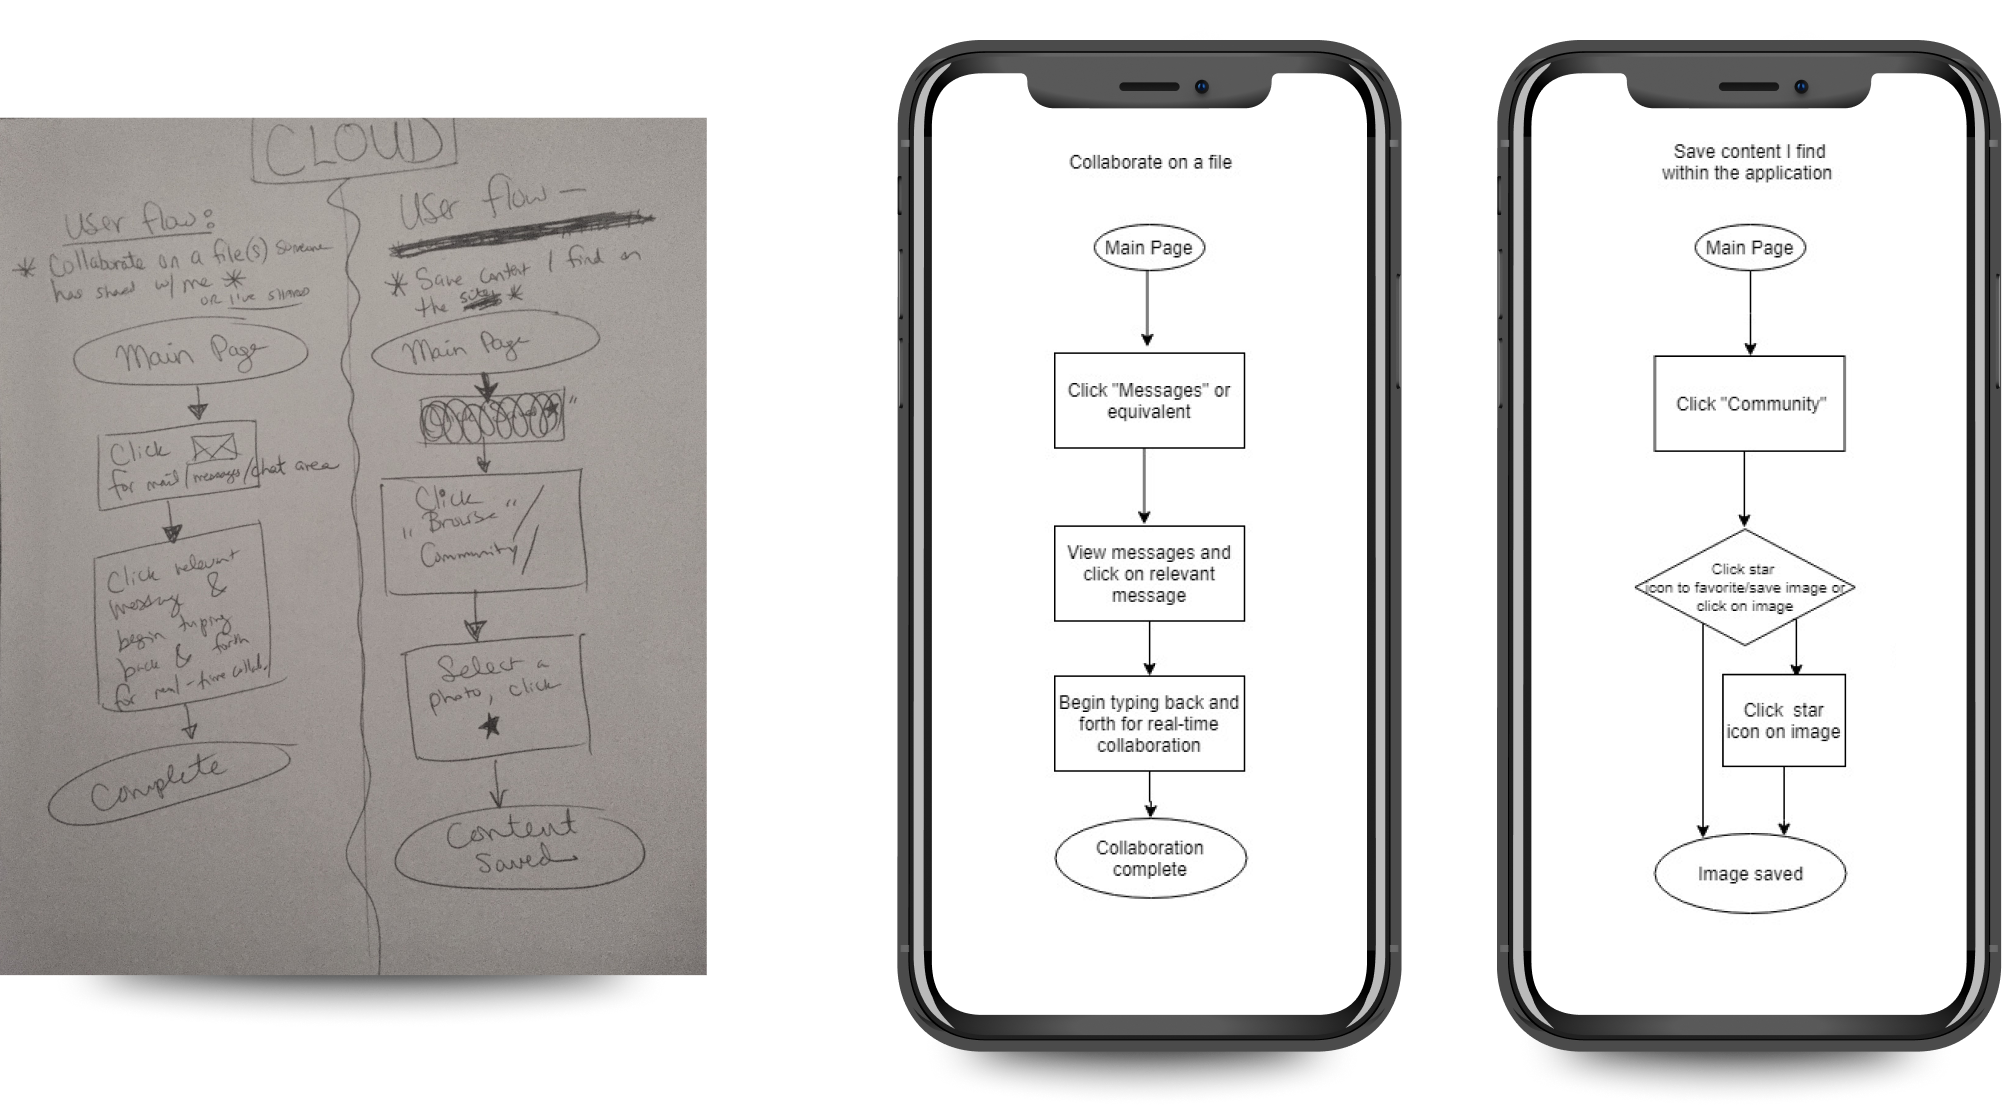 CLOUD
User flow:
* Collaborate on a file(s) someone
has shared w/ me *
OR I've shared
Main Page
Click
for mail/messages/chat area
Click relevant
message &
begin typing
back & forth
for real-time collab.
Complete
User flow —
* Save content I find on
the *
Main Page
Click
"Browse"/
Community/
Select a
photo, click
★
Content
Saved
Collaborate on a file
Main Page
Click "Messages" or
equivalent
View messages and
click on relevant
message
Begin typing back and
forth for real-time
collaboration
Collaboration
complete
Save content I find
within the application
Main Page
Click "Community"
Click star
icon to favorite/save image or
click on image
Click star
icon on image
Image saved